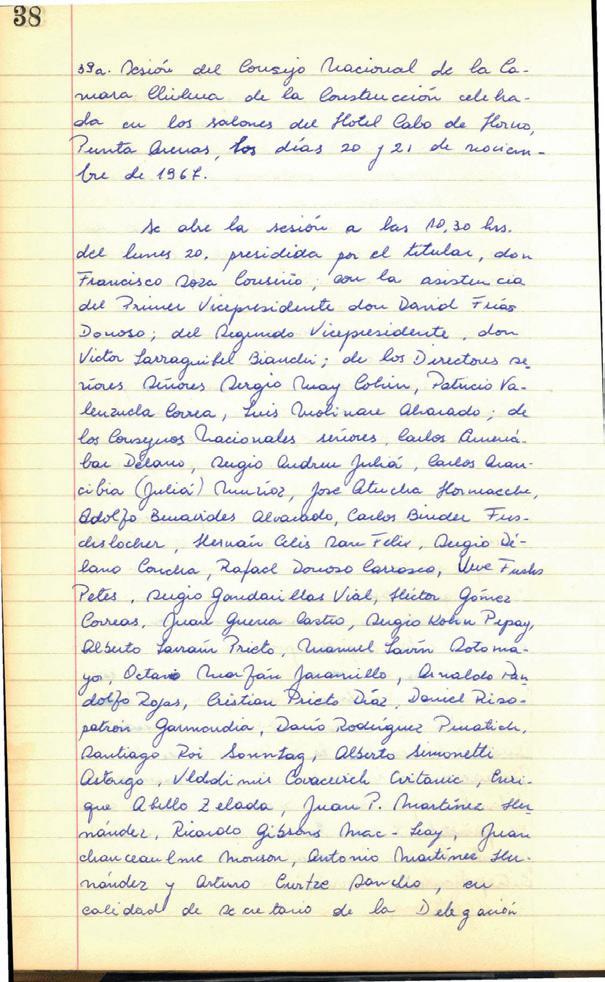 38
59a. Sesión del Consejo Nacional de la Cá-
mara Chilena de la Construcción celebra-
da en los salones del Hotel Cabo de Hornos,
Punta Arenas, los días 20 y 21 de noviem-
bre de 1967.
Se abre la sesión a las 10,30 hrs.
del lunes 20, presidida por el titular, don
Francisco Soza Cousiño; con la asistencia
del Primer Vicepresidente don David Frías
Donoso; del Segundo Vicepresidente, don
Victor Larraguibel Bianchi; de los Directores se-
ñores Señores Sergio May Colvin, Patricio Va-
lenzuela Correa, Luis Molinare Alvarado; de
los Consejeros Nacionales señores, Carlos Amená-
bar Délano, Sergio Andreu Juliá, Carlos Aran-
cibia (Juliá) Muñoz, José Atucha Hormaeche,
Adolfo Benavides Alvarado, Carlos Binder
Hernán Celis San Felix, Sergio Dé-
lano Concha, Rafael Donoso Carrasco, Uwe Fuchs
Petes, Sergio Gandarillas Vial, Héctor Gómez
Correas, Juan Guerra Castro, Sergio Kohn Pepay,
Alberto Larraín Prieto, Manuel Lavín Sotoma-
yor, Octavio Marfán Jaramillo, Arnaldo Pan-
dolfo Rojas, Cristian Prieto Díaz, Daniel Riso-
patrón Garmendia, Darío Rodríguez
Santiago Roi Sonntag, Alberto Simonetti
Astengo, Vladimir Covacevich Cvitanic, Enri-
que Abello Zelada, Juan P. Martínez Her-
nández, Ricardo Gibbons Mac-Leay, Juan
Antonio Martínez Her-
nández y Arturo Sancho, en
calidad de secretario de la Delegación